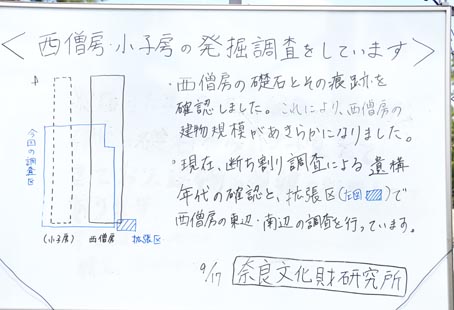 ＜西僧房・小子房の発掘調査をしています＞
・西僧房の礎石とその痕跡を
確認しました。これにより、西僧房の
建物規模があきらかになりました。
・現在、断ち割り調査による遺構
年代の確認と、拡張区(左図)で
西僧房の東辺・南辺の調査を行っています。
今回の調査区
(小子房)
西僧房
拡張区
9/17
奈良文化財研究所